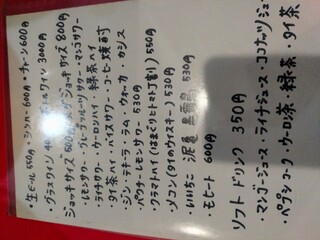 ・生ビール 550円 ・シンハー 600円 ・チャーン 600円
・グラスワイン ボトルワイン 3000円
ジョッキサイズ 500円 メガジョッキサイズ 800円
・レモンサワー ・グレープフルーツサワー ・マンゴサワー
・ライチサワー ・ウーロンハイ ・緑茶ハイ
・タイ茶ハイ ・バイスサワー ・コーヒー焼酎
・ジン ・テキーラ ・ラム ・ウォッカ ・カシス
・パクチーレモンサワー 530円
・クラマトハイ (はまぐりとトマト丁割り) 550円
・メコン (タイのウィスキー) 530円
・いいちこ 530円
・モヒート 600円
ソフトドリンク 350円
・マンゴージュース ・ライチジュース ・ココナッツジュ
・ペプシコーラ ・ウーロン茶 ・緑茶 ・タイ茶